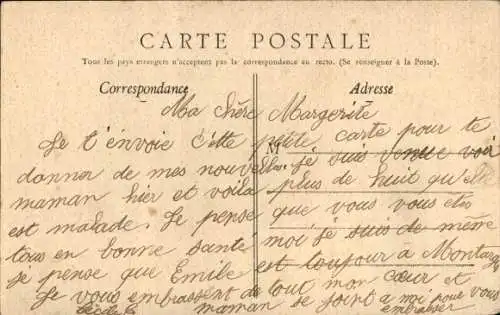 CARTE POSTALE
Tous les pays étrangers n'acceptent pas la correspondance au recto. (Se renseigner à la Poste).
Correspondance
Adresse
M
Ma chère Margerite
Je t'envoie cette petite carte pour te
donner de mes nouvelles. je suis venue voir
maman hier et voila plus de huit qu'elle
est malade. Je pense que vous vous etes
tous en bonne santé moi je suis de même
je pense que Emile est toujour a Montarg
Je vous embrassent de tout mon cœur et
maman se joint a moi pour vous
embrasser